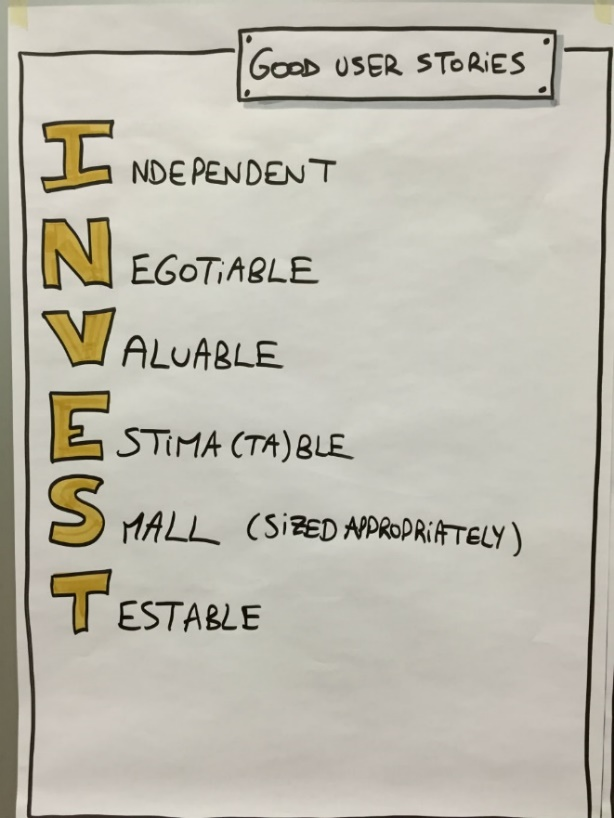 GOOD USER STORIES
INDEPENDENT
NEGOTiABLE
VALUABLE
ESTiMA(TA)BLE
SMALL (SiZED APPROPRiATELY)
TESTABLE